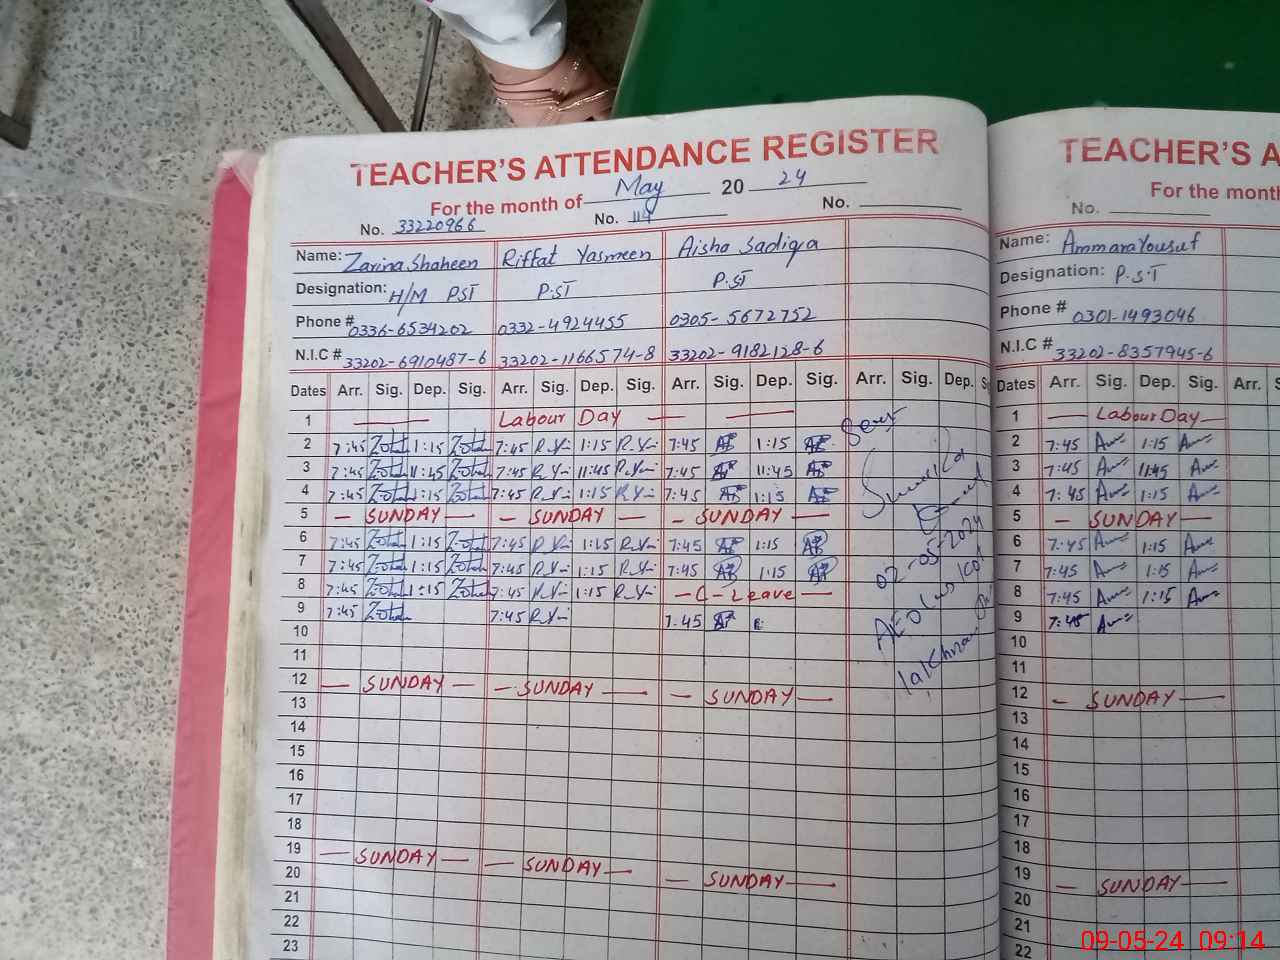 TEACHER'S ATTENDANCE REGISTER
For the month of May 20 24
No. 33220966 No. 114 No.
Name: Zarina Shaheen Riffat Yasmeen Aisha Sadiqa
Designation: H/M PST P.ST P.ST
Phone # 0336-6534202 0332-4924455 0305-5672752
N.I.C # 33202-6910487-6 33202-1166574-8 33202-9182128-6
Dates Arr. Sig. Dep. Sig. Arr. Sig. Dep. Sig. Arr. Sig. Dep. Sig. Arr. Sig. Dep. S
1 Labour Day
2 7:45 1:15 7:45 R.Y 1:15 R.Y 7:45 1:15
3 7:45 11:45 7:45 R.Y 11:45 R.Y 7:45 11:45
4 7:45 1:15 7:45 R.Y 1:15 R.Y 7:45 1:15
5 — SUNDAY — — SUNDAY — — SUNDAY —
6 7:45 1:15 7:45 R.Y 1:15 R.Y 7:45 1:15
7 7:45 1:15 7:45 R.Y 1:15 R.Y 7:45 1:15
8 7:45 1:15 7:45 R.Y 1:15 R.Y — C - Leave —
9 7:45 7:45 R.Y 7:45
10
11
12 — SUNDAY — — SUNDAY — — SUNDAY —
13
14
15
16
17
18
19 — SUNDAY — — SUNDAY — — SUNDAY —
20
21
22
23
02-05-2024
AEO
TEACHER'S A
For the month
No.
Name: Ammara Yousuf
Designation: P.S.T
Phone # 0301-1493046
N.I.C # 33202-8357945-6
Dates Arr. Sig. Dep. Sig. Arr. S
1 — Labour Day —
2 7:45 1:15
3 7:45 11:45
4 7:45 1:15
5 — SUNDAY —
6 7:45 1:15
7 7:45 1:15
8 7:45 1:15
9 7:45
10
11
12 — SUNDAY —
13
14
15
16
17
18
19 — SUNDAY —
20
21
22
09-05-24 09:14